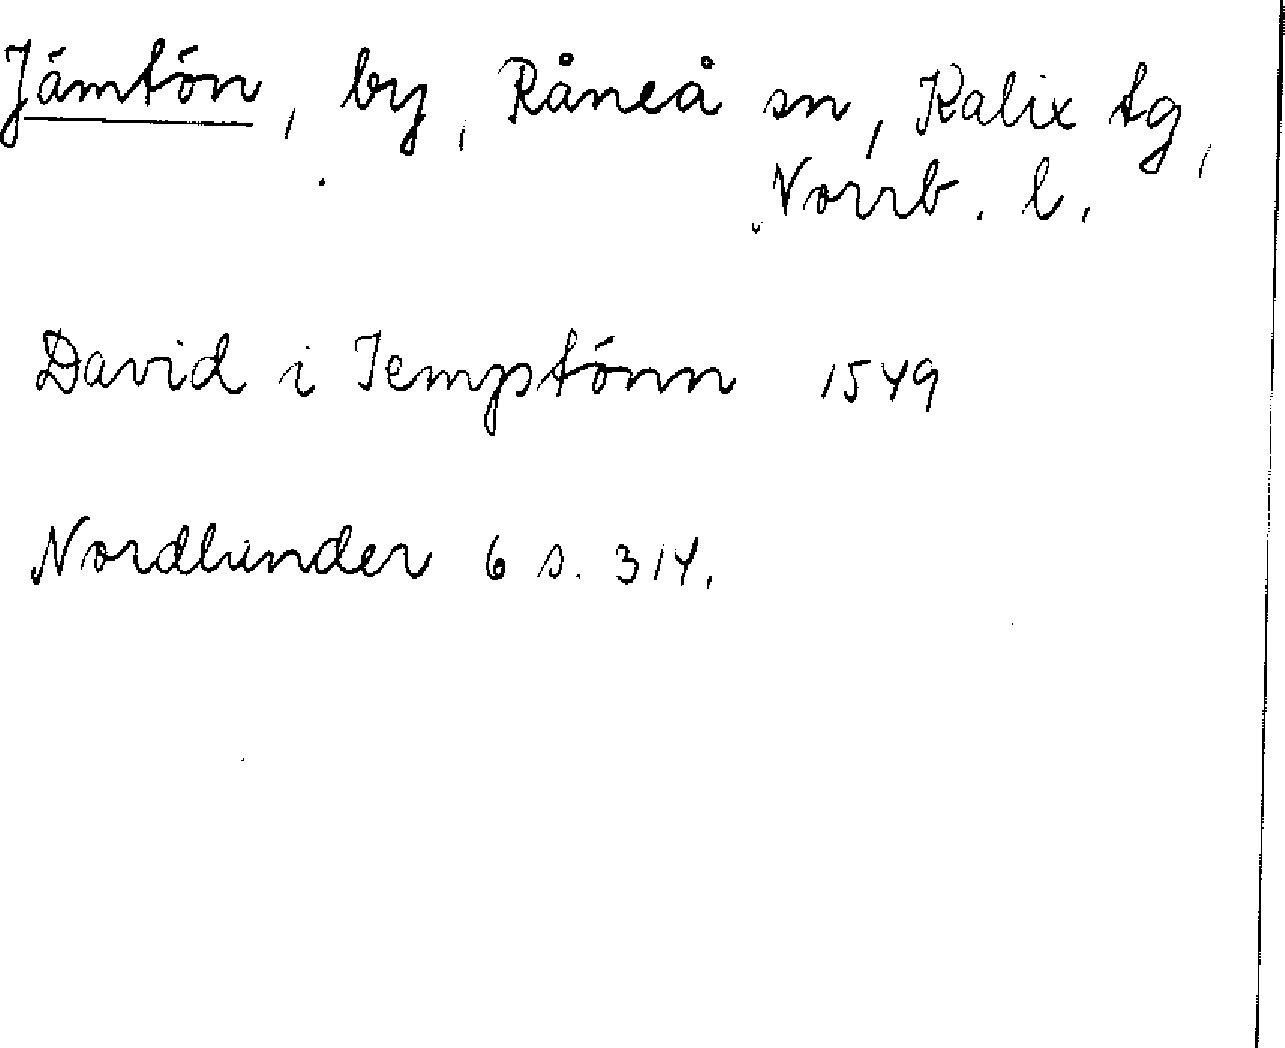 Jämtön, by, Råneå sn, Kalix tg,
Norrb. l.
David i Jemptönn 1549
Nordlander 6 s. 314.